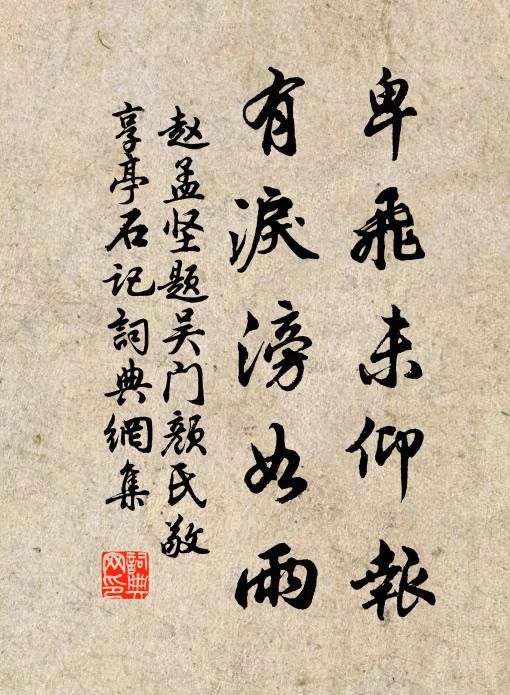 卑飛未仰報
有淚滂如雨
赵孟坚题吴门颜氏敬
享亭石记詞典網集
詞典
网印